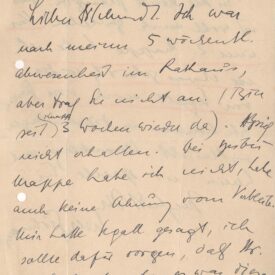 Lieber H. Schmidt. Ich war
nach meiner 5 wöchentl.
Abwesenheit im Rathaus,
aber traf Sie nicht an. (Bin
seit 3 Wochen wieder da). Brief
nicht erhalten. Die
Mappe habe ich nicht, habe
auch keine Ahnung vom
Mir hatte gesagt, ich
sollte dafür sorgen, daß Hr.